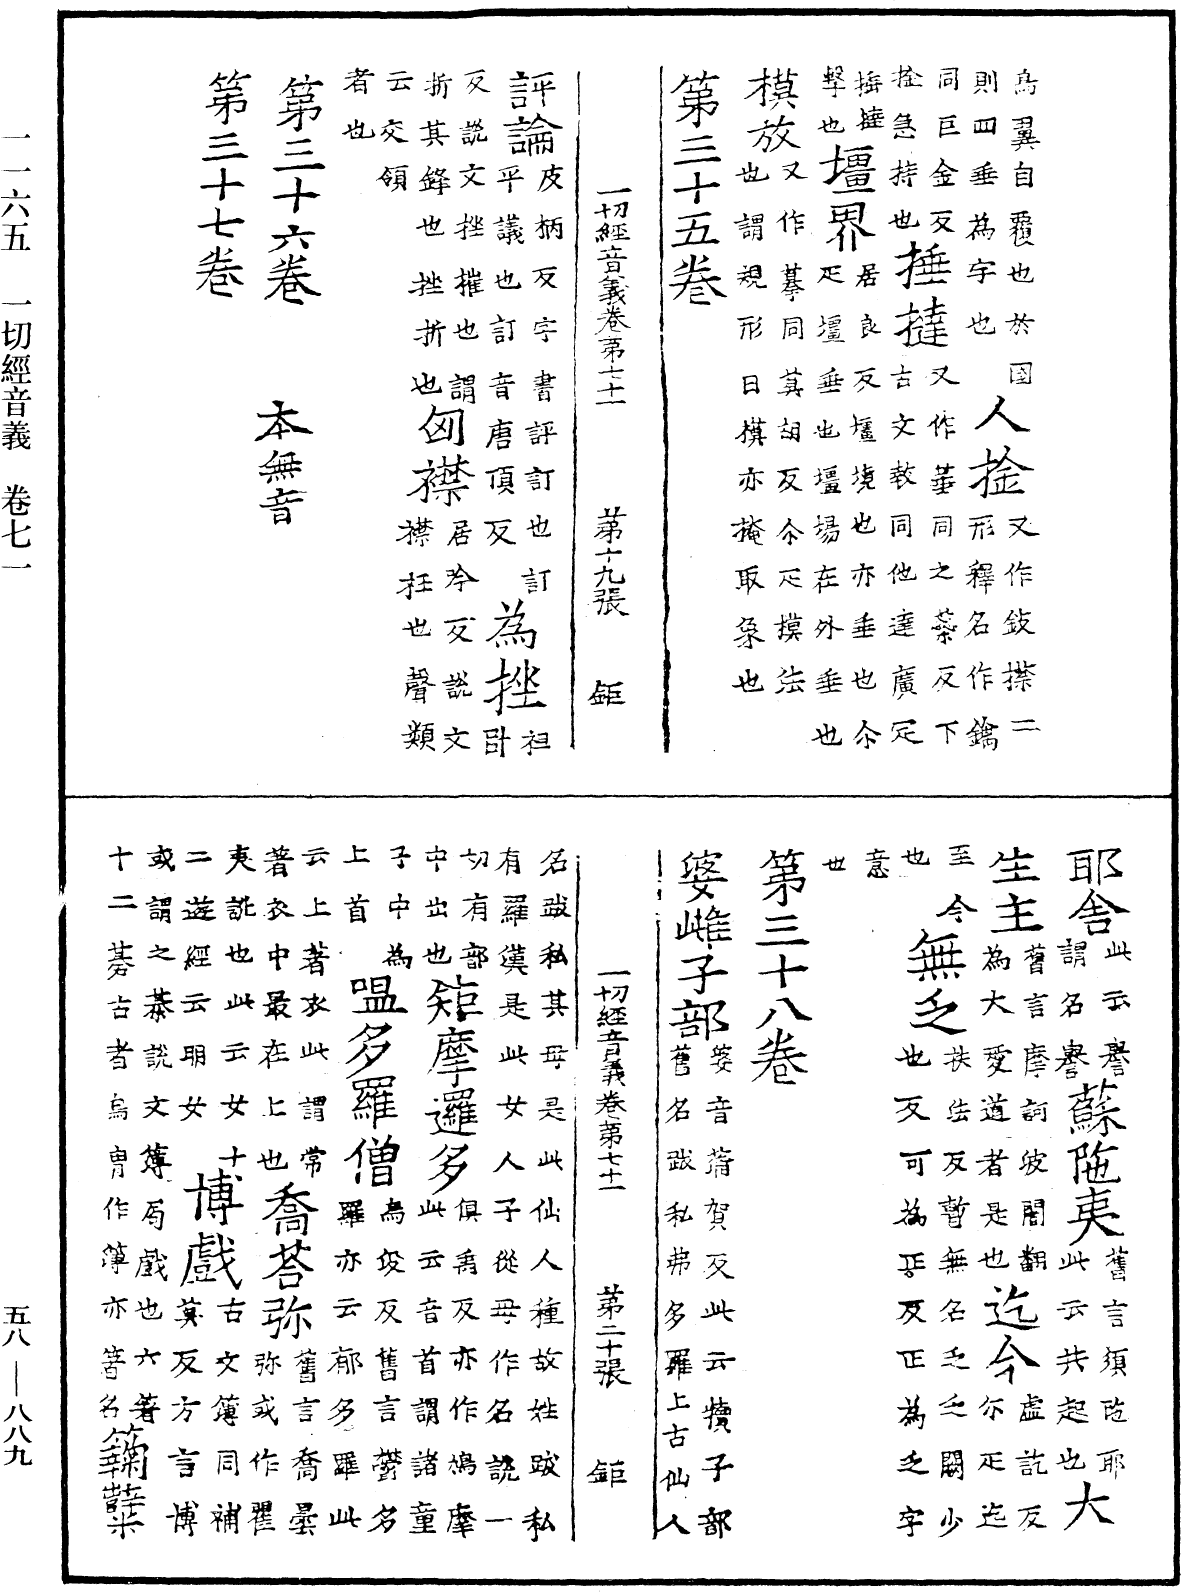 鳥翼自覆也於国
則四垂為字也
人捦
又作㩒襟二
形釋名作
同巨金反
捦急持也
捶撻
又作同之蘂反下
古文同他達廣疋
撻
擊也
壃界
居良反壃境也亦垂也尒
疋壃垂也壃場在外垂也
模放
又作摹同莫胡反尒疋摸法
也謂規形曰模亦掩取也
第三十五卷
一切經音義卷第七十一 第十九張 鉅
評論
皮柄反字書評訂也訂
平議也訂音唐頂反
為挫
祖
卧
反說文挫摧也謂
折其鋒也挫折也
匈襟
居吟反說文
襟衽也聲類
云交領
者也
第三十六卷
第三十七卷
本無音
耶舍
此云譽
謂名譽
蘇陁夷
舊言須陁耶
此云共起也
大生主
舊言摩訶波闍翻
為大愛道者是也
迄今
虛訖反
尒疋迄
至今
也
無乏
扶法反暫無名乏乏闕少
也反可為反正為乏字
意
也
第三十八卷
婆雌子部
婆音蒱賀反此云犢子部
舊名跋私弗多羅上古仙人
一切經音義卷第七十一 第二十張 鉅
名跋私其母是此仙人種故姓跋私
有羅漢是此女人子從母作名說一
切有部
中出也
矩摩邏多
俱禹反亦作鳩摩
此云音首謂諸童
子中為
上首
嗢多羅僧
烏沒反舊言欝多
羅亦云郁多羅此
云上著衣此謂常
著衣中最在上也
喬荅弥
舊言喬曇
弥或作瞿
夷訛也此云女十
二遊經云明女
博戲
古文簙同補
莫反方言博
或謂之棊說文簙局戲也六箸
十二棊古者烏胄作簙亦箸名
麴櫱
一一六五 一切經音義 卷七一
五八—八八九